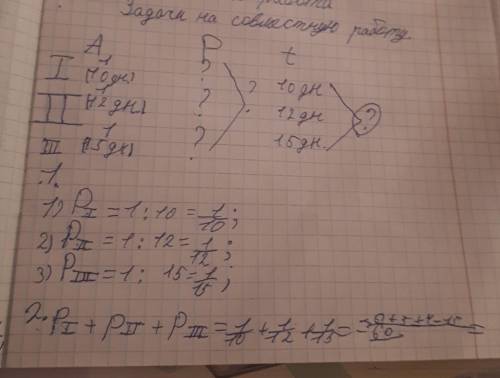 работа
Задачи на совместную работу.
A P t
I 1 (10 дн.) ? 10 дн
II 1 (12 дн.) ? ? 12 дн ?
III 1 (15 дн) ? 15 дн.
1.
1) P_I = 1 : 10 = 1/10 ;
2) P_II = 1 : 12 = 1/12 ;
3) P_III = 1 : 15 = 1/15 ;
2. P_I + P_II + P_III = 1/10 + 1/12 + 1/15 = /60 =